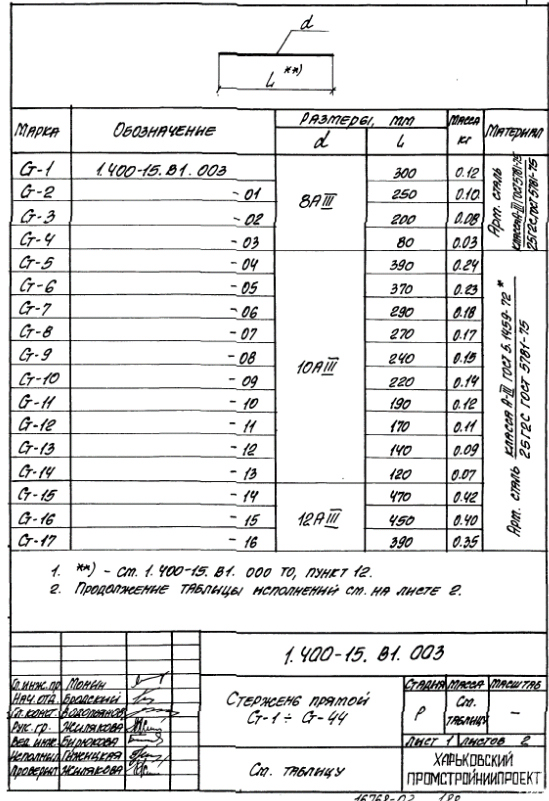 d
L **)
МАРКА ОБОЗНАЧЕНИЕ РАЗМЕРЫ, ММ МАССА КГ МАТЕРИАЛ
d L
Ст-1 1.400-15.В1.003 8АIII 300 0.12
Ст-2 -01 250 0.10
Ст-3 -02 200 0.08
Ст-4 -03 80 0.03
Ст-5 -04 10АIII 390 0.24
Ст-6 -05 370 0.23
Ст-7 -06 290 0.18
Ст-8 -07 270 0.17
Ст-9 -08 240 0.15
Ст-10 -09 220 0.14
Ст-11 -10 190 0.12
Ст-12 -11 170 0.11
Ст-13 -12 140 0.09
Ст-14 -13 120 0.07
Ст-15 -14 12АIII 470 0.42
Ст-16 -15 450 0.40
Ст-17 -16 390 0.35
Арм. сталь класса А-III ГОСТ 5781-75
25Г2С ГОСТ 5781-75
Арм. сталь класса А-III ГОСТ 5.1459-72*
25Г2С ГОСТ 5781-75
1. **) - см. 1.400-15.В1.000 ТО, ПУНКТ 12.
2. Продолжение таблицы исполнений см. на листе 2.
1.400-15.В1.003
Гл.инж.пр Монин
Нач.отд Бродский
Гл.конст Водопьянов
Рук.гр. Жилякова
Вед.инж. Бирюкова
Исполнил
Проверил Жилякова
Стержень прямой
Ст-1 ÷ Ст-44
СТАДИЯ МАССА МАСШТАБ
Р См. таблицу -
Лист 1 Листов 2
См. таблицу
ХАРЬКОВСКИЙ
ПРОМСТРОЙНИИПРОЕКТ